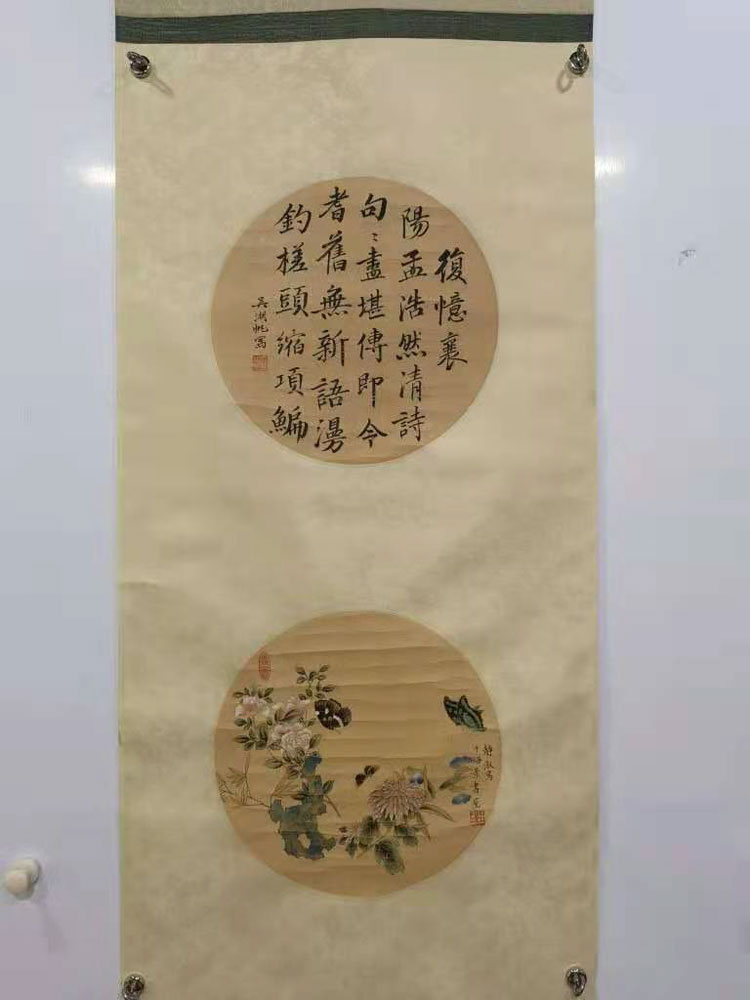 復憶襄
陽孟浩然清詩
句〻盡堪傳即今
耆舊無新語漫
釣槎頭縮項鯿
吳湖帆寫
靜淑寫